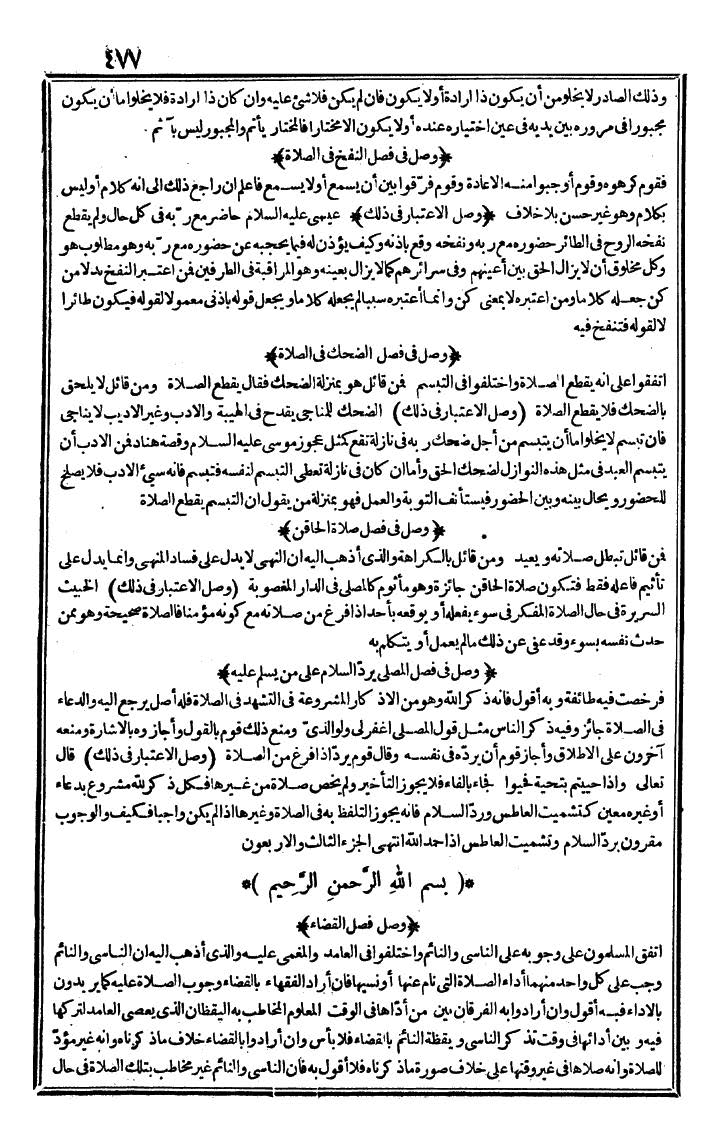 ٤٧٧
وذلك الصادر لا يخلو من أن يكون ذا ارادة أولا يكون فان لم يكن فلا شئ عليه وان كان ذا ارادة فلا يخلو اما أن يكون
مجبورا فى مروره بين يديه فى عين اختياره عنده أولا يكون الا مختارا فالمختار يأثم والمجبور ليس بآثم .
﴿وصل فى فصل النفخ فى الصلاة﴾
فقوم كرهوه وقوم أوجبوا منه الاعادة وقوم فرّقوا بين أن يسمع أولا يسمع فاعلم ان راجع ذلك الى انه كلام أوليس
بكلام وهو غير حسن بلا خلاف ﴿وصل الاعتبار فى ذلك﴾ عيسى عليه السلام حاضر مع ربّه فى كل حال ولم يقطع
نفخه الروح فى الطائر حضوره مع ربه ونفخه وقع باذنه وكيف يؤذن له فيما يحجبه عن حضوره مع ربّه وهو مطلوب هو
وكل مخلوق أن لا يزال الحق بين أعينهم وفى سرائرهم كما لا يزال بعينه وهو المراقبة فى الطرفين فمن اعتبر النفخ بدلا من
كن جعله كلاما ومن اعتبره لا بمعنى كن وانما أعتبره سببا لم يجعله كلاما ويجعل قوله باذنى معمولا لقوله فيكون طائرا
لا لقوله فتنفخ فيه
﴿وصل فى فصل الضحك فى الصلاة﴾
اتفقوا على انه يقطع الصلاة واختلفوا فى التبسم فمن قائل هو بمنزلة الضحك فقال يقطع الصلاة ومن قائل لا يلحق
بالضحك فلا يقطع الصلاة (وصل الاعتبار فى ذلك) الضحك للمناجى يقدح فى الهيبة والادب وغير الاديب لا يناجى
فان تبسم لا يخلو اما أن يتبسم من أجل ضحك ربه فى نازلة تقع كمثل عجوز موسى عليه السلام وقصة هناد فمن الادب أن
يتبسم العبد فى مثل هذه النوازل لضحك الحق وأما ان كان فى نازلة تعطى التبسم لنفسه فتبسم فانه سيئ الادب فلا يصلح
للحضور ويحال بينه وبين الحضور فيستأنف التوبة والعمل فهو بمنزلة من يقول ان التبسم يقطع الصلاة
﴿وصل فى فصل صلاة الحاقن﴾
فمن قائل تبطل صلاته ويعيد ومن قائل بالكراهة والذى أذهب اليه ان النهى لا يدل على فساد المنهى وانما يدل على
تأثيم فاعله فقط فتكون صلاة الحاقن جائزة وهو مأثوم كالمصلى فى الدار المغصوبة (وصل الاعتبار فى ذلك) الخبيث
السريرة فى حال الصلاة المفكر فى سوء يفعله أو يوقعه بأحد اذا فرغ من صلاته مع كونه مؤمنا فالصلاة صحيحة وهو ممن
حدث نفسه بسوء وقد عفى عن ذلك مالم يعمل أو يتكلم به
﴿وصل فى فصل المصلى يردّ السلام على من يسلم عليه﴾
فرخصت فيه طائفة وبه أقول فانه ذكر الله وهو من الاذكار المشروعة فى التشهد فى الصلاة فله أصل يرجع اليه والدعاء
فى الصلاة جائز وفيه ذكر الناس مثل قول المصلى اغفر لى ولوالدىّ ومنع ذلك قوم بالقول وأجازوه بالاشارة ومنعه
آخرون على الاطلاق وأجاز قوم أن يردّه فى نفسه وقال قوم يردّ اذا فرغ من الصلاة (وصل الاعتبار فى ذلك) قال
تعالى واذا حييتم بتحية فحيوا فجاء بالفاء فلا يجوز التأخير ولم يخص صلاة من غيرها فكل ذكر لله مشروع بدعاء
أو غيره معين كتشميت العاطس وردّ السلام فانه يجوز التلفظ به فى الصلاة وغيرها اذا لم يكن واجبا فكيف والوجوب
مقرون بردّ السلام وتشميت العاطس اذا حمد الله انتهى الجزء الثالث والاربعون
*( بسم الله الرّحمن الرّحيم )*
﴿وصل فصل القضاء﴾
اتفق المسلمون على وجوبه على الناسى والنائم واختلفوا فى العامد والمغمى عليه والذى أذهب اليه ان الناسى والنائم
وجب على كل واحد منهما أداء الصلاة التى نام عنها أونسيها فان أراد الفقهاء بالقضاء وجوب الصلاة عليه كما يريدون
بالاداء فبه أقول وان أرادوا به الفرقان بين من أدّاها فى الوقت المعلوم المخاطب به اليقظان الذى يعصى العامد لتركها
فيه وبين أدائها فى وقت تذكر الناسى ويقظة النائم بالقضاء فلا بأس وان أرادوا بالقضاء خلاف ماذكرناه وانه غير مؤدّ
للصلاة وانه صلاها فى غير وقتها على خلاف صورة ماذكرناه فلا أقول به فان الناسى والنائم غير مخاطب بتلك الصلاة فى حال